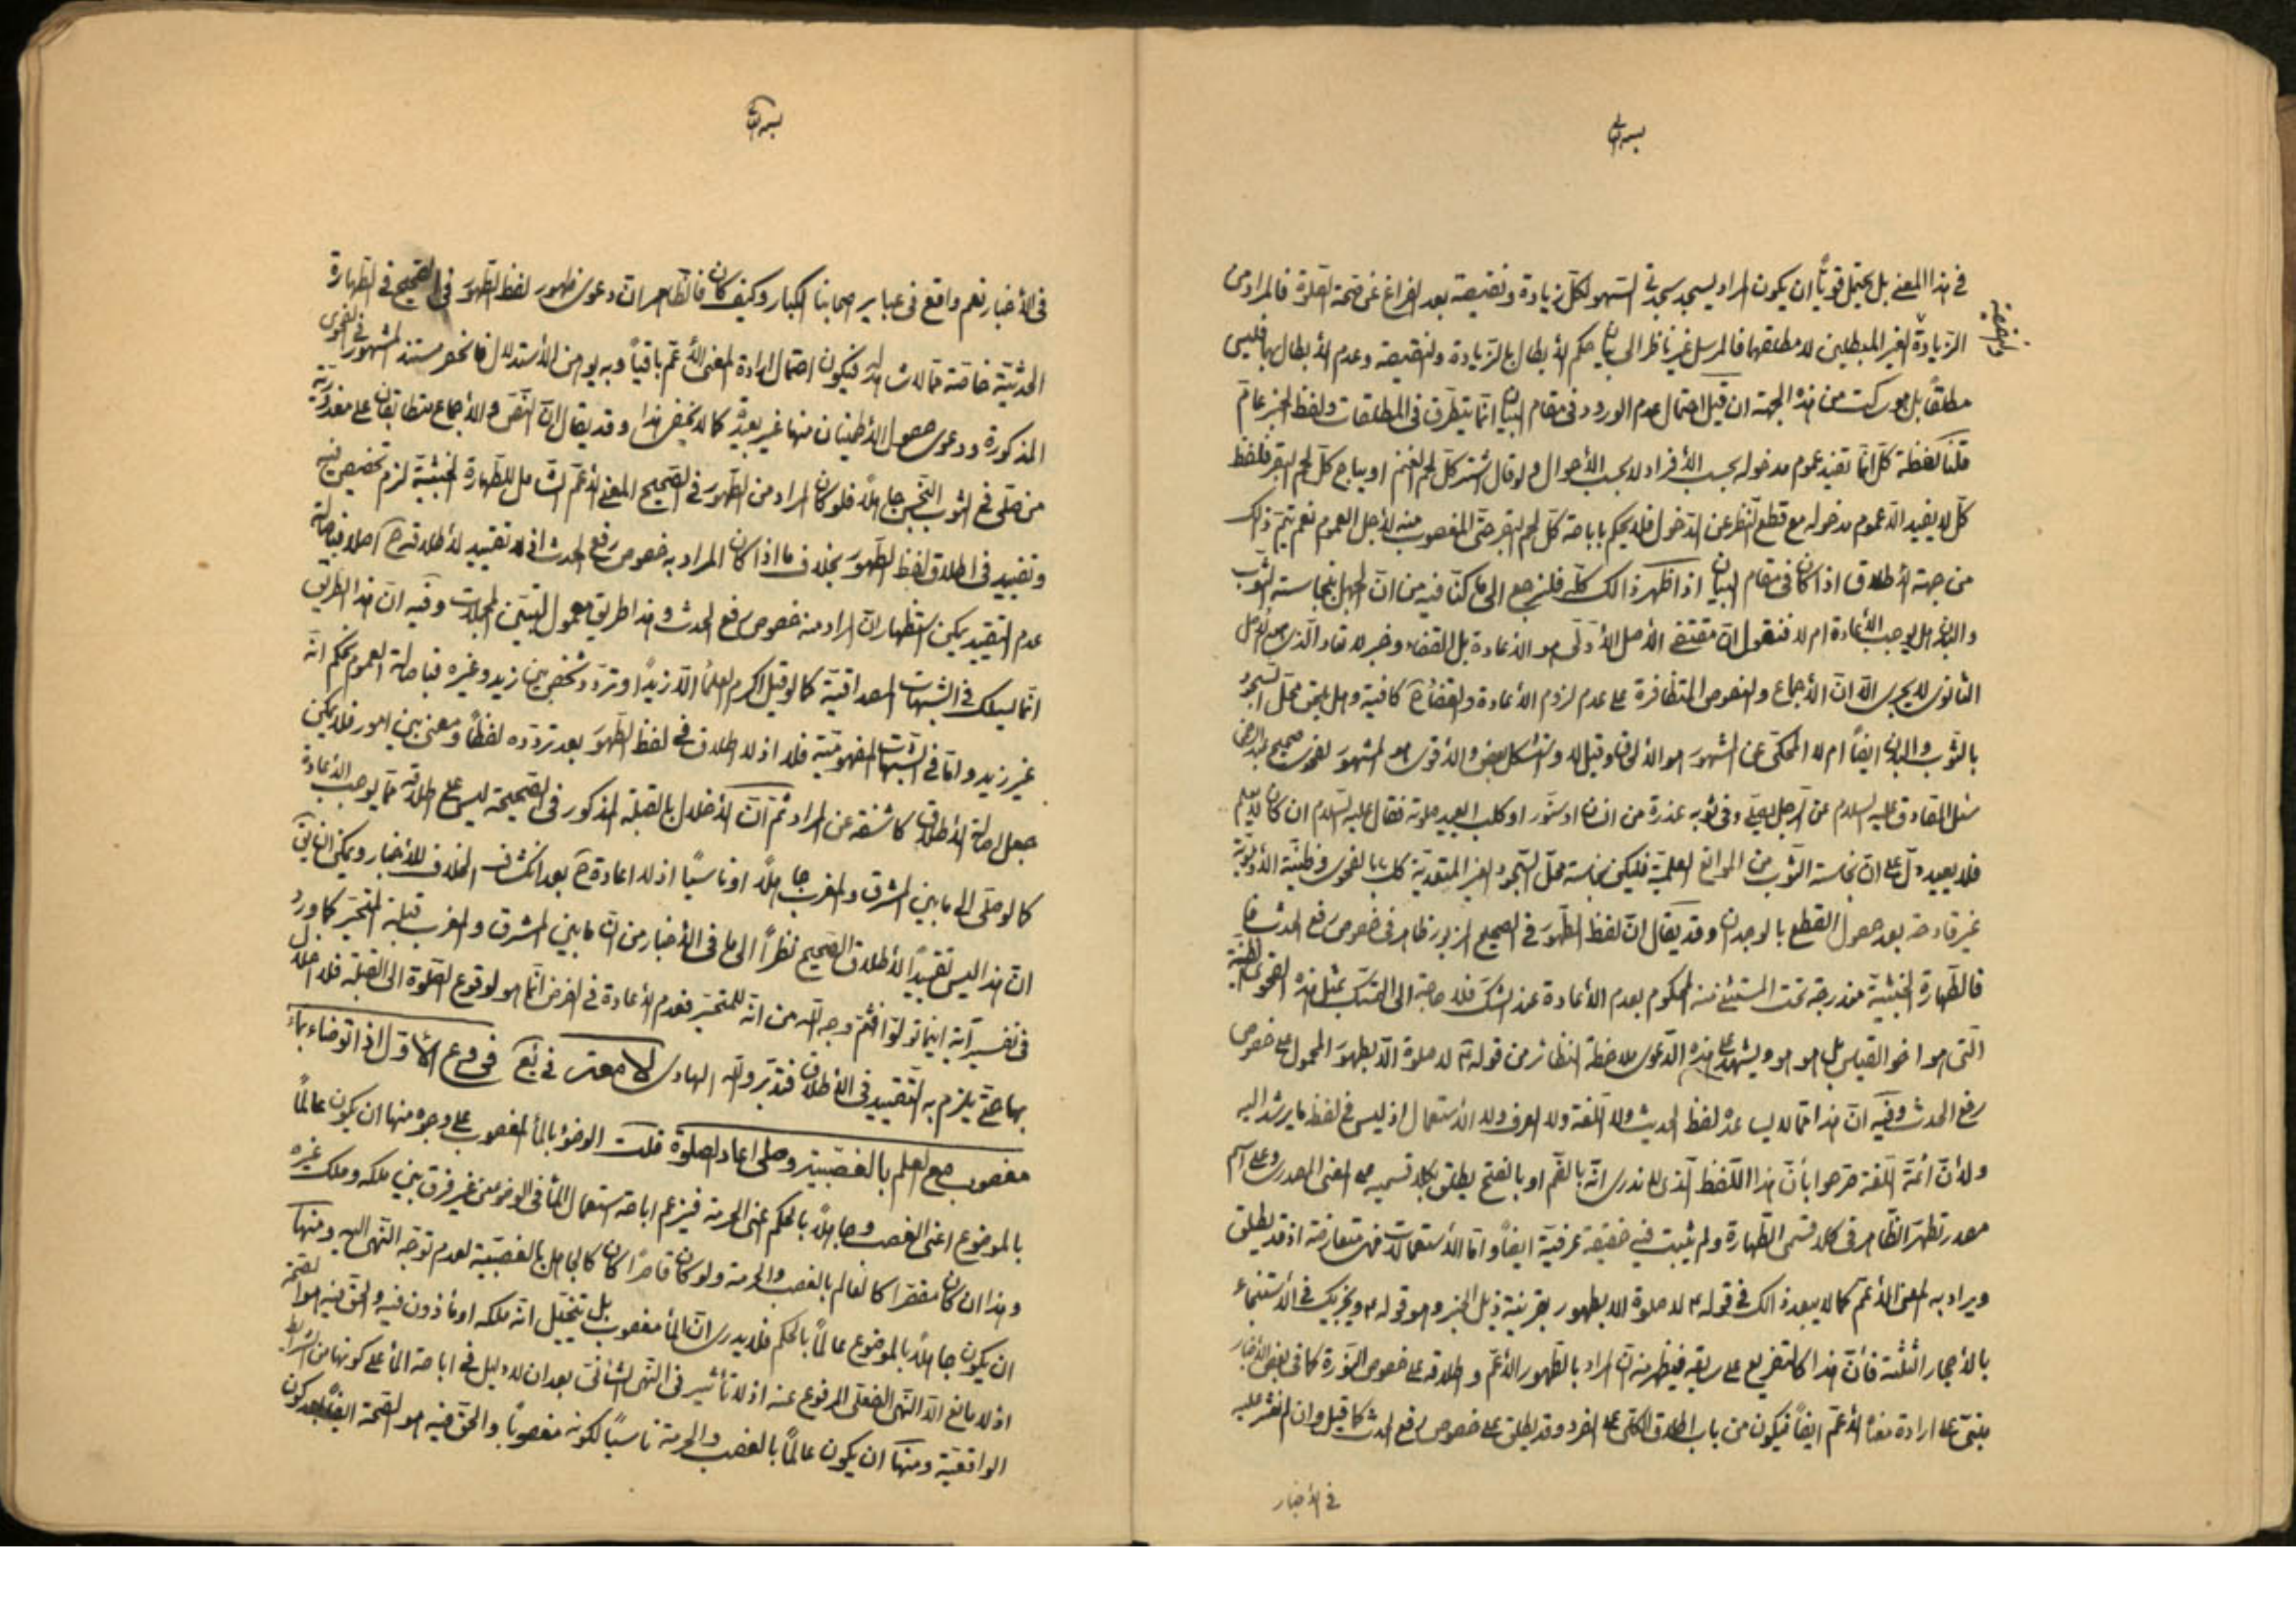 بسمه تعالی
فى هذا المعنى بل يحتمل قويّاً ان يكون المراد يسجد سجدتى السّهو لكلّ زيادة ونقيصة بعد الفراغ عن صحّة الصّلوة فالمراد من
الزيادة الغير المبطلين لا مطلقها فالمرسل غير ناظر الى بيان حكم الأبطال بالزّيادة والنقيصة وعدم الأبطال بها فليس
والنقيصة
مطلقاً بل هو ساكت من هذه الجهة ان قيل احتمال عدم الورود فى مقام البيان انّما يتطرّق فى المطلقات ولفظ الخبر عامّ
قلنا لفظة كلّ انّما تفيد عموم مدخوله بحسب الأفراد لا بحسب الأحوال ولو قال اشتر كلّ لحم الغنم او يباح كلّ لحم البقر فلفظ
كلّ لا يفيد الّا عموم مدخوله مع قطع النّظر عن الدّخول فلا يحكم باباحة كلّ لحم البقر حتّى المغصوب منه لأجل العموم نعم يتمّ ذلك
من جهة الأطلاق اذا كان فى مقام البيان اذا ظهر ذالك كلّه فلنرجع الى ما كنّا فيه من انّ الجهل بنجاسة الثّوب
والبدن هل يوجب الأعادة ام لا فنقول انّ مقتضى الأصل الأوّلى هو الأعادة بل القضاء وخبر لا تعاد الّذى هو الأصل
الثانوى لا يجرى الّا انّ الأجماع والنصوص المتظافرة على عدم لزوم الأعادة والقضاء ح كافية وهل يلحق محلّ السّجود
بالثّوب والبدن ايضاً ام لا المحكىّ عن المشهور هو الأوّل وقيل لا واستشكل بعض والأقوى هو المشهور لفحوى صحيح عبد الرحمن
سئل الصّادق عليه السلام عن الرّجل يصلّى وفى ثوبه عذرة من انسان او سنّور او كلب ايعيد صلوته فقال عليه السّلام ان كان لم يعلم
فلا يعيد دلّ على انّ نجاسة الثّوب من الموانع العلميّة فليكن نجاسة محلّ السّجود الغير المتعدّية كك بالفحوى وظنّيّة الأولويّة
غير قادحة بعد حصول القطع بالوجدان وقد يقال انّ لفظ الطّهور فى الصحيح المزبور ظاهر فى خصوص رفع الحدث فا
فالطّهارة الخبثيّة مندرجة تحت المستثنى منه المحكوم بعدم الأعادة عند الشّك فلا حاجة الى التمسّك بمثل هذه الفحوى الظنّية
الّتى هو اخو القياس بل هو هو ويشهد على هذه الدّعوى ملاحظة النظائر من قوله ع لا صلوة الّا بطهور المحمول على خصوص
رفع الحدث وفيه انّ هذا ممّا لا يساعده لفظ الحديث ولا اللّغة ولا العرف ولا الأستعمال اذ ليس فى لفظ ما يرشد اليه
ولأنّ ائمّة اللّغة صرّحوا بأنّ هذا اللّفظ الّذى لا ندرى انّه بالضّم او بالفتح يطلق بكلا قسميه على المعنى المصدرى وعلى اسم
مصدر تطهّر الظّاهر فى كلا قسمى الطّهارة ولم يثبت فيه حقيقة عرفيّة ايضاً وامّا الأستعمالات فهى متعارضة اذ قد يطلق
ويراد به المعنى الأعمّ كما لا يبعد ذالك فى قوله ع لا صلوة الّا بطهور بقرينة ذيل الخبر وهو قوله ع ويجزيك فى الأستنجاء
بالأحجار الثّلثة فأنّ هذا كالتفريع على سابقه فيظهر منه انّ المراد بالطّهور الأعمّ واطلاقه على خصوص النّورة كما فى بعض الأخبار
مبنىّ على ارادة معناه الأعمّ ايضاً فيكون من باب اطلاق الكلّى على الفرد وقد يطلق على خصوص رفع الحدث كما قيل وان لم نعثر عليه
فى الأخبار
بسمه تعالی
فى الأخبار نعم واقع فى عبائر اصحابنا الكبار وكيف كان فالظّاهر انّ دعوى ظهور لفظ الطّهور فى الصّحيح فى الطّهارة
الحدثيّة خاصّة ممّا لا شاهد له فيكون احتمال ارادة المعنى الأعمّ باقياً وبه يوهن الأستدلال فانحصر مستند المشهور فى الفحوى
المذكورة ودعوى حصول الأطمينان منها غير بعيد كما لا يخفى هذا وقد يقال انّ النّصّ والأجماع متطابقان على معذوريّة
من صلّى فى الثوب النّجس جاهلاً فلو كان المراد من الطّهور فى الصّحيح المعنى الأعمّ الشّامل للطّهارة الخبثيّة لزم تخصيص فيه
وتقييد فى اطلاق لفظ الطّهور بخلاف ما اذا كان المراد به خصوص رفع الحدث اذ لا تقييد لأطلاقه ح اصلا فباصالة
عدم التقييد يمكن استظهار انّ المراد منه خصوص رفع الحدث وهذا طريق معمول لتبيّن المجملات وفيه انّ هذا الطّريق
انّما يسلك فى الشّبهات المصداقيّة كما لو قيل اكرم العلماء الّا زيداً وتردّد شخص بين زيد وغيره فباصالة العموم نحكم انّه
غير زيد وامّا فى الشّبهات المفهوميّة فلا اذ لا اطلاق فى لفظ الطّهور بعد تردّده لفظاً ومعنى بين امور فلا يمكن
جعل اصالة الأطلاق كاشفة عن المراد ثمّ انّ الأخلال بالقبلة المذكور فى الصّحيحة ليس على اطلاقه ممّا يوجب الأعادة
كما لو صلّى الى ما بين المشرق والمغرب جاهلاً او ناسياً اذ لا اعادة ح بعد انكشاف الخلاف للأخبار ويمكن ان يقال
انّ هذا ليس تقييداً لأطلاق الصّحيح نظراً الى ما فى الأخبار من انّ ما بين المشرق والمغرب قبلة المتحيّر كما ورد
فى تفسير آية اينما تولّوا فثمّ وجه اللّه من انّه للمتحيّر فعدم الأعادة فى الفرض انّما هو لوقوع الصّلوة الى القبلة فلا اخلال
بها حتّى يلزم به التّقييد فى الأطلاق فتدبّر واللّه الهادى فروع الأوّل اذا توضّاء بماء
مغصوب مع العلم بالغصبيّة وصلّى اعاد الصلوة قلت الوضوء بالماء المغصوب على وجوه منها ان يكون عالماً
بالموضوع اعنى الغصب وجاهلاً بالحكم اعنى الحرمة فيزعم اباحة استعمال الماء فى الوضوء من غير فرق بين ملكه وملك غيره
وهذا ان كان مقصّرا كالعالم بالغصب والحرمة ولو كان قاصراً كان كالجاهل بالغصبيّة لعدم توجّه النّهى اليه ومنها
ان يكون جاهلاً بالموضوع عالماً بالحكم فلا يدرى انّ الماء مغصوب بل يتخيّل انّه ملكه او مأذون فيه والحقّ فيه هو الصّحّة
اذ لا مانع الّا النّهى الفعلى المرفوع عنه اذ لا تأثير فى النّهى الشّأنىّ بعد ان لا دليل فى اباحة الماء على كونها من الشّرائط
الواقعيّة ومنها ان يكون عالماً بالغصب والحرمة ناسياً لكونه مغصوباً والحقّ فيه هو الصّحّة ايضاً بعد كون